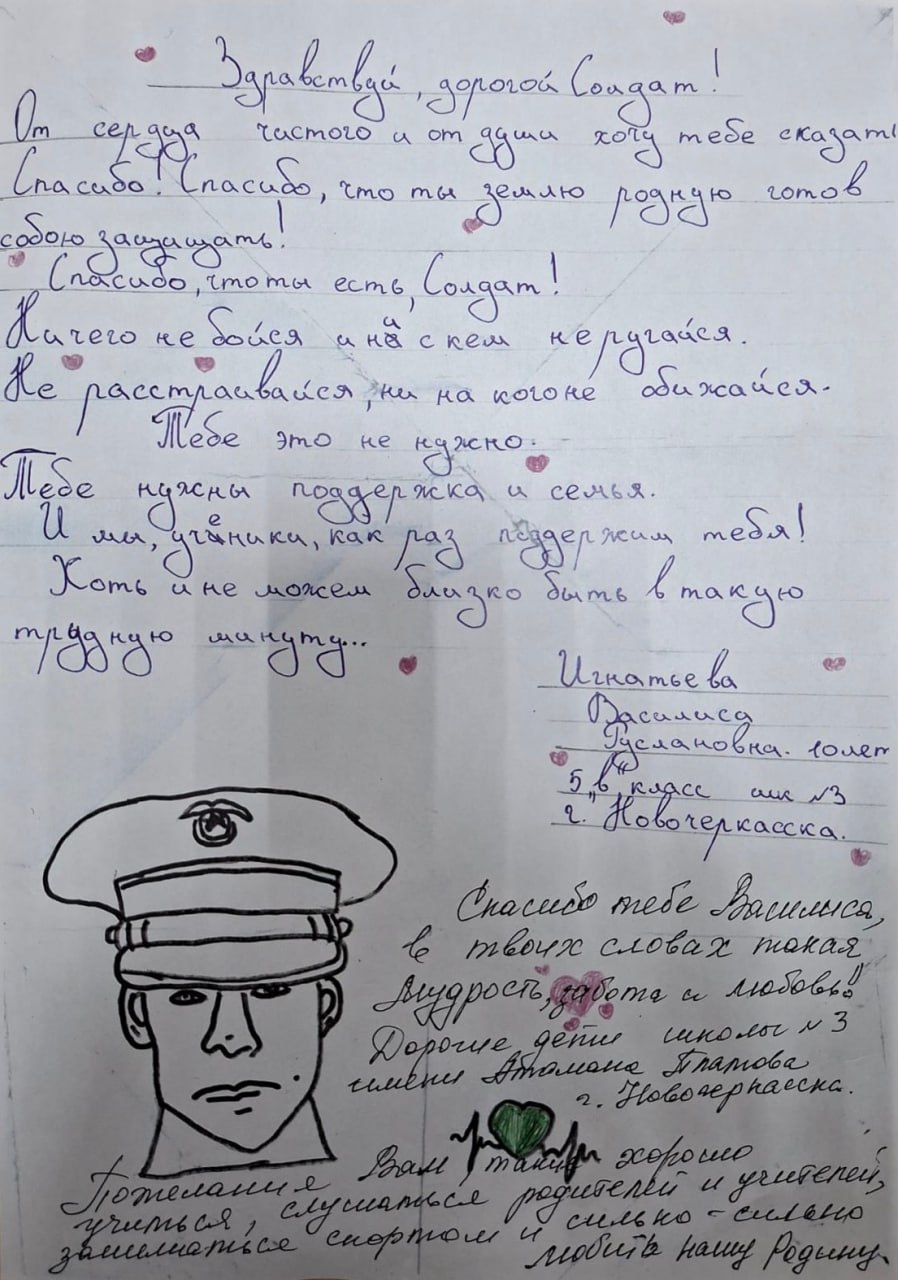 Здравствуй, дорогой Солдат!
От сердца чистого и от души хочу тебе сказать
Спасибо! Спасибо, что ты землю родную готов
собою защищать!
Спасибо, что ты есть, Солдат!
Ничего не бойся и ни с кем не ругайся.
Не расстраивайся, ни на кого не обижайся.
Тебе это не нужно.
Тебе нужны поддержка и семья.
И мы, ученики, как раз поддержим тебя!
Хоть и не можем близко быть в такую
трудную минуту...
Игнатьева
Василиса
Руслановна. 10 лет
5 „в" класс шк №3
г. Новочеркасска.
Спасибо тебе Василиса,
в твоих словах такая
мудрость, забота и любовь!!
Дорогие дети школы №3
имени Атамана Платова
г. Новочеркасска.
Пожелания Вам, также хорошо
учиться, слушаться родителей и учителей,
заниматься спортом и сильно-сильно
любить нашу Родину.